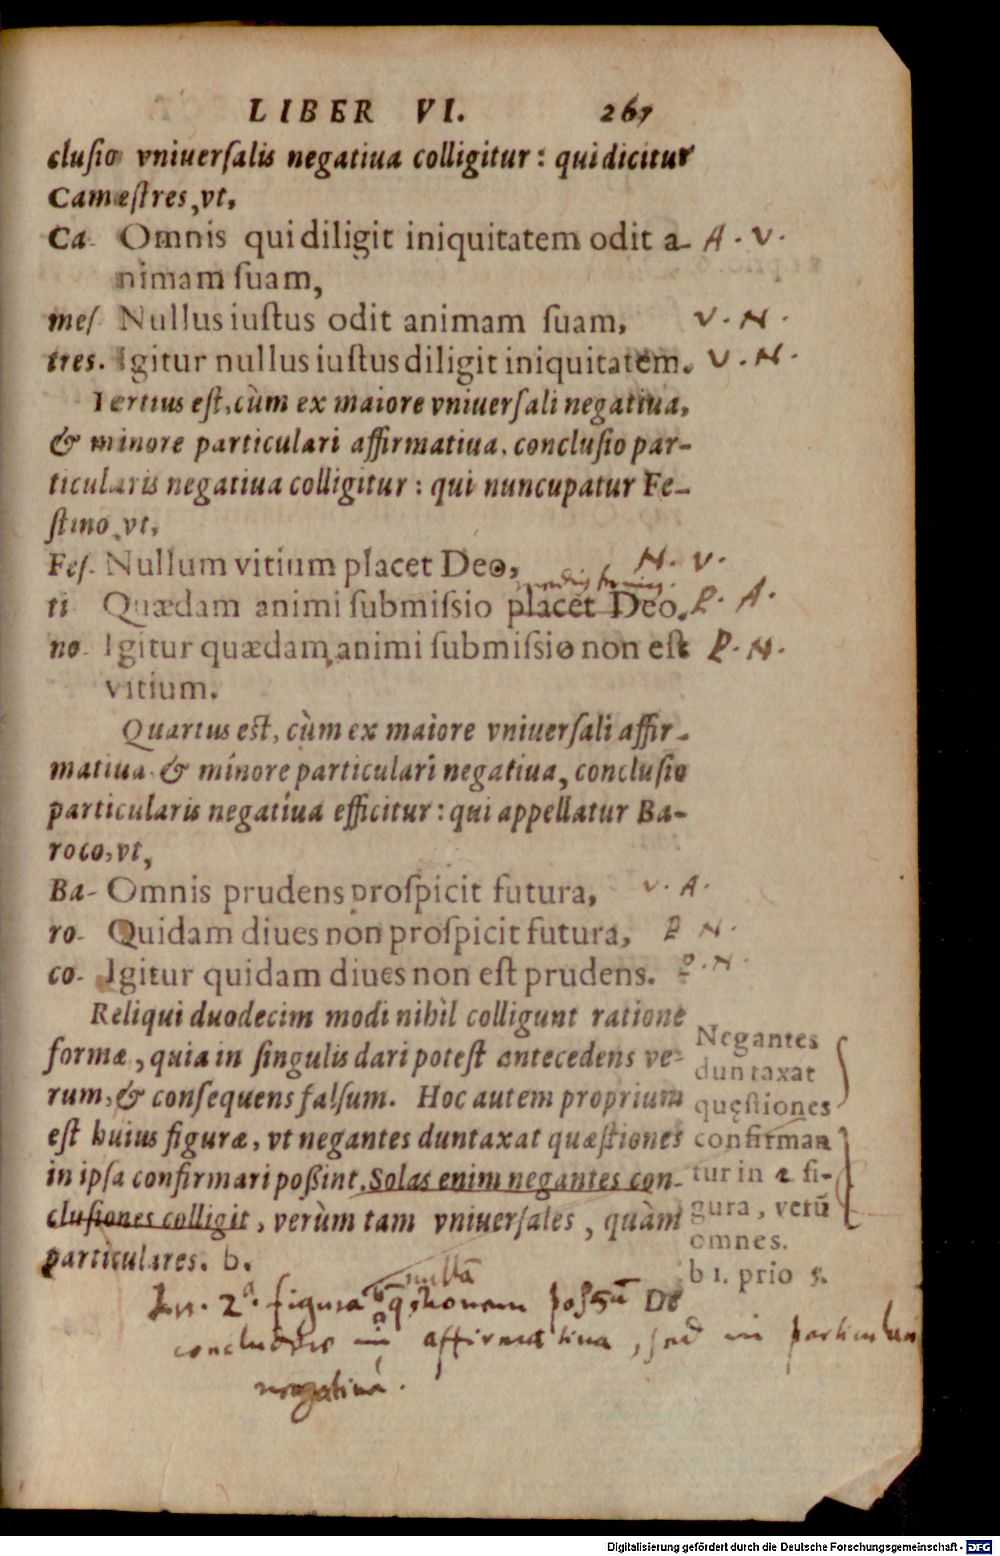 LIBER VI. 267
cluſio vniuerſalis negatiua colligitur: qui dicitur
Camestres, vt,
Ca- Omnis qui diligit iniquitatem odit a- A. V.
nimam ſuam,
meſ Nullus iuſtus odit animam ſuam, V. N.
tres. Igitur nullus iuſtus diligit iniquitatem. V. N.
Tertius eſt, cùm ex maiore vniuerſali negatiua,
& minore particulari affirmatiua, concluſio par-
ticularis negatiua colligitur: qui nuncupatur Fe-
ſtino, vt,
Feſ- Nullum vitium placet Deo, N. V.
ti Quædam animi ſubmiſsio placet Deo. P. A.
no- Igitur quædam animi ſubmiſsio non eſt P. N.
vitium.
Quartus eſt, cùm ex maiore vniuerſali affir-
matiua & minore particulari negatiua, concluſio
particularis negatiua efficitur: qui appellatur Ba-
roco, vt,
Ba- Omnis prudens proſpicit futura, V. A.
ro- Quidam diues non proſpicit futura, P N.
co- Igitur quidam diues non eſt prudens. P. N.
Reliqui duodecim modi nihil colligunt ratione
formæ, quia in ſingulis dari poteſt antecedens ve-
rum, & conſequens falſum. Hoc autem proprium
eſt huius figuræ, vt negantes duntaxat quæſtiones
in ipſa confirmari poßint. Solas enim negantes con-
cluſiones colligit, verùm tam vniuerſales, quàm
particulares. b.
Negantes
duntaxat
quęſtiones
confirman
tur in 2 fi-
gura, verū
omnes.
b 1. prio 5.
nullā
In 2ª. figura q̄stionem possū
concludere in affirmatiua, sed in particulari
negatiua.
Digitalisierung gefördert durch die Deutsche Forschungsgemeinschaft - DFG